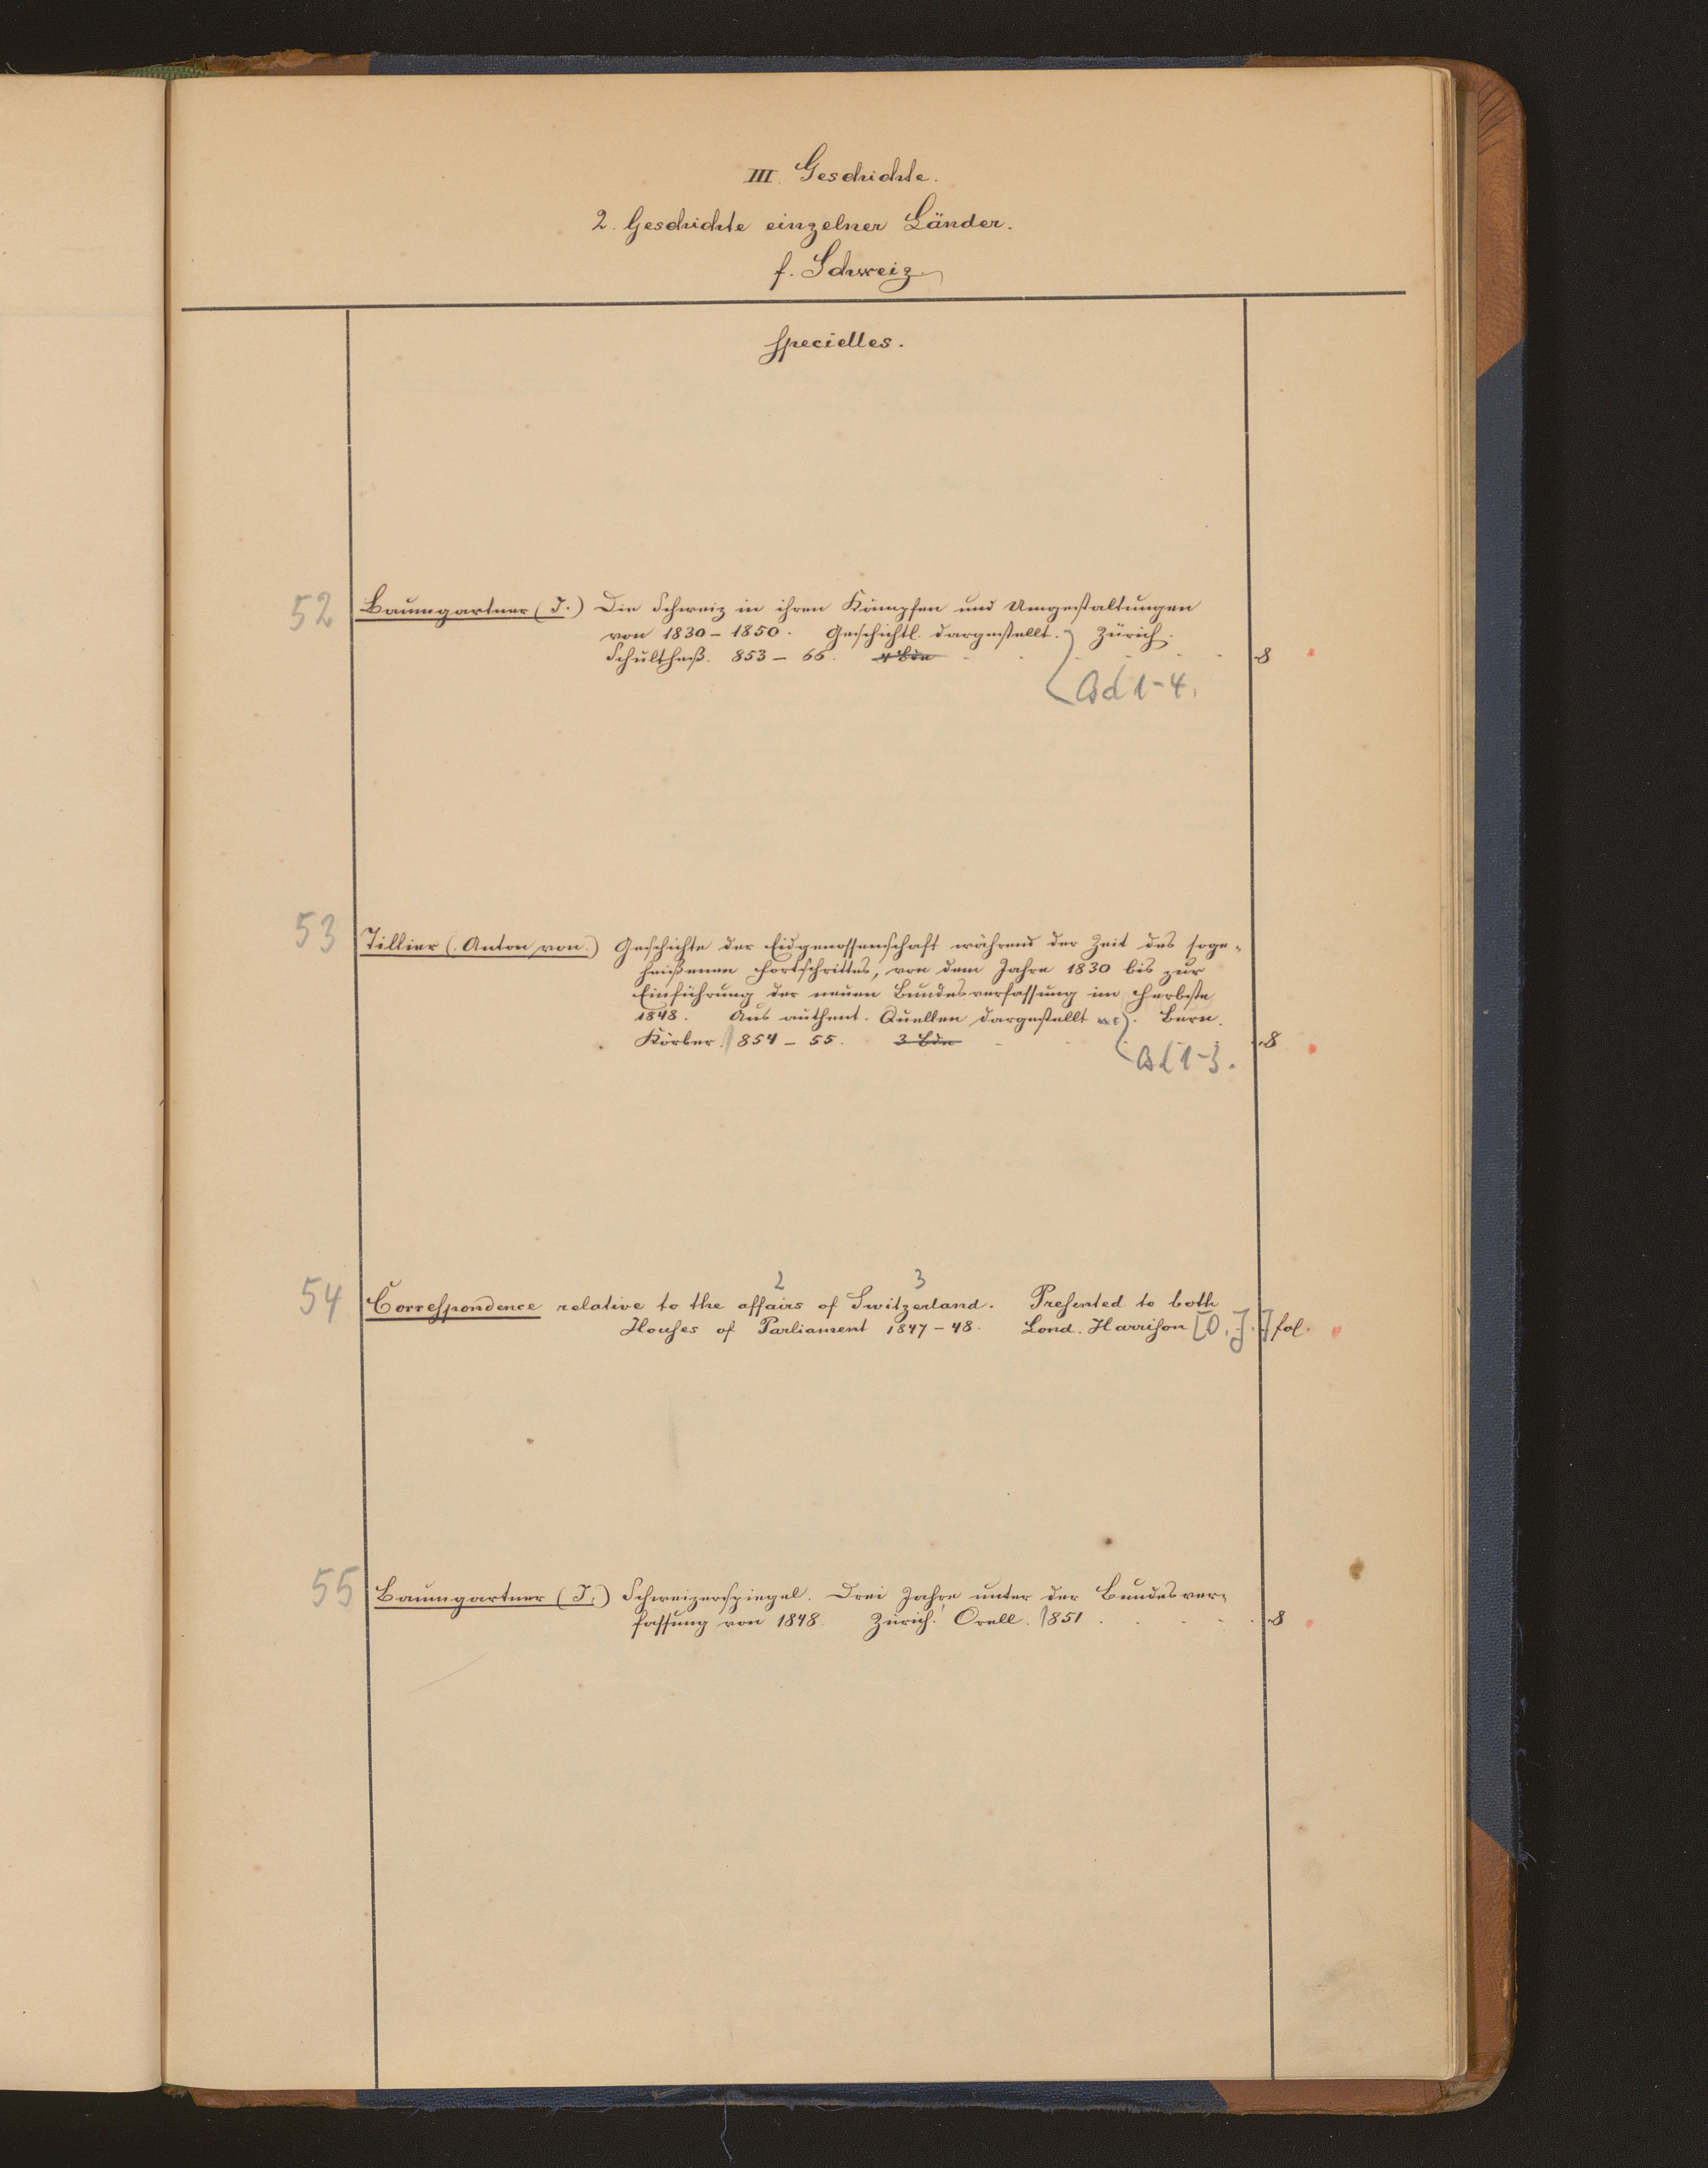 III. Geschichte.
2. Geschichte einzelner Länder.
f. Schweiz.
Specielles.
52 Baumgartner (J.) Die Schweiz in ihren Kämpfen und Umgestaltungen
von 1830 – 1850. Geschichtl. dargestellt. Zürich.
Schultheß. 853 – 66. 4 Bde 8
Bd 1-4.
53 Tillier (Anton von.) Geschichte der Eidgenossenschaft während der Zeit des soge-
heißenen Fortschrittes, von dem Jahre 1830 bis zur
Einführung der neuen Bundesverfassung im Herbste
1848. Aus authent. Quellen dargestellt. Bern.
Körber. 1854 – 55. 3 Bde 8
Bd 1-3.
2 3
54 Correspondence relative to the affairs of Switzerland. Presented to both
Houses of Parliament 1847 – 48. Lond. Harrison [O. J.] fol.
55 Baumgartner (J.) Schweizerspiegel. Drei Jahre unter der Bundesver-
fassung von 1848. Zürich. Orell. 1851 8